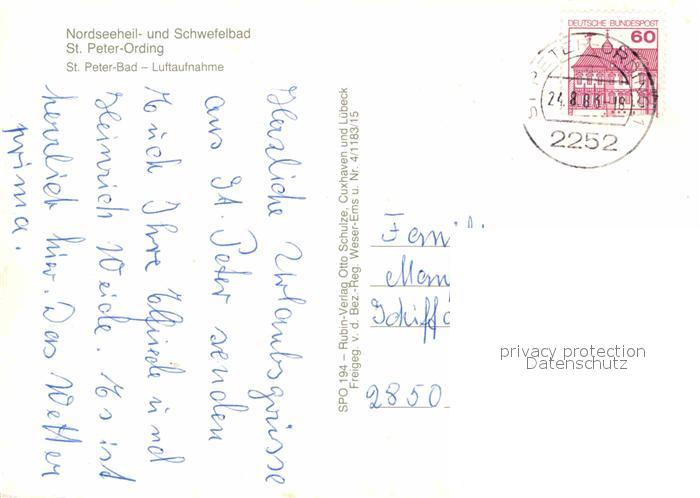 Nordseeheil- und Schwefelbad
St. Peter-Ording
St. Peter-Bad – Luftaufnahme
Herzliche Urlaubsgrüsse
aus St. Peter senden
Euch Ihre Elfriede und
Heinrich Weide. Es ist
herrlich hier. Das Wetter
prima.
SPO 194 – Rubin-Verlag Otto Schulze, Cuxhaven und Lübeck
Freigeg. v. d. Bez.-Reg. Weser-Ems u. Nr. 4/1183/15
DEUTSCHE BUNDESPOST
60
ST. PETER-ORDING 1
24.8.83-18
2252
Fam
Schiffd
2850
privacy protection
Datenschutz